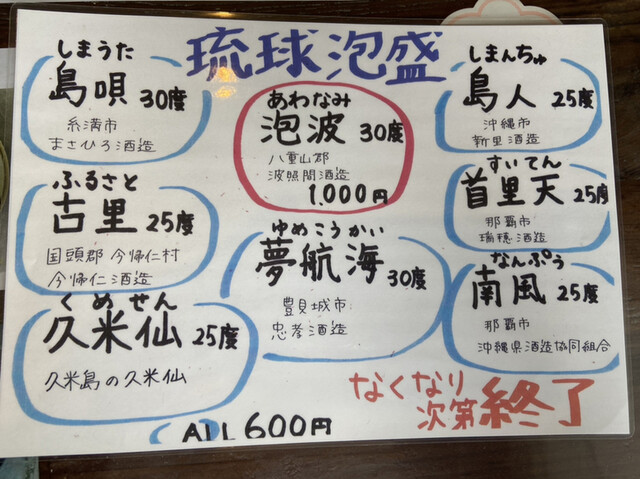 琉球泡盛
しまうた
島唄 30度
糸満市
まさひろ酒造
あわなみ
泡波 30度
八重山郡
波照間酒造
1,000円
しまんちゅ
島人 25度
沖縄市
新里酒造
ふるさと
古里 25度
国頭郡 今帰仁村
今帰仁酒造
ゆめこうかい
夢航海 30度
豊見城市
忠孝酒造
すいてん
首里天 25度
那覇市
瑞穂酒造
くめせん
久米仙 25度
久米島の久米仙
なんぷう
南風 25度
那覇市
沖縄県酒造協同組合
なくなり
次第終了
ALL 600円